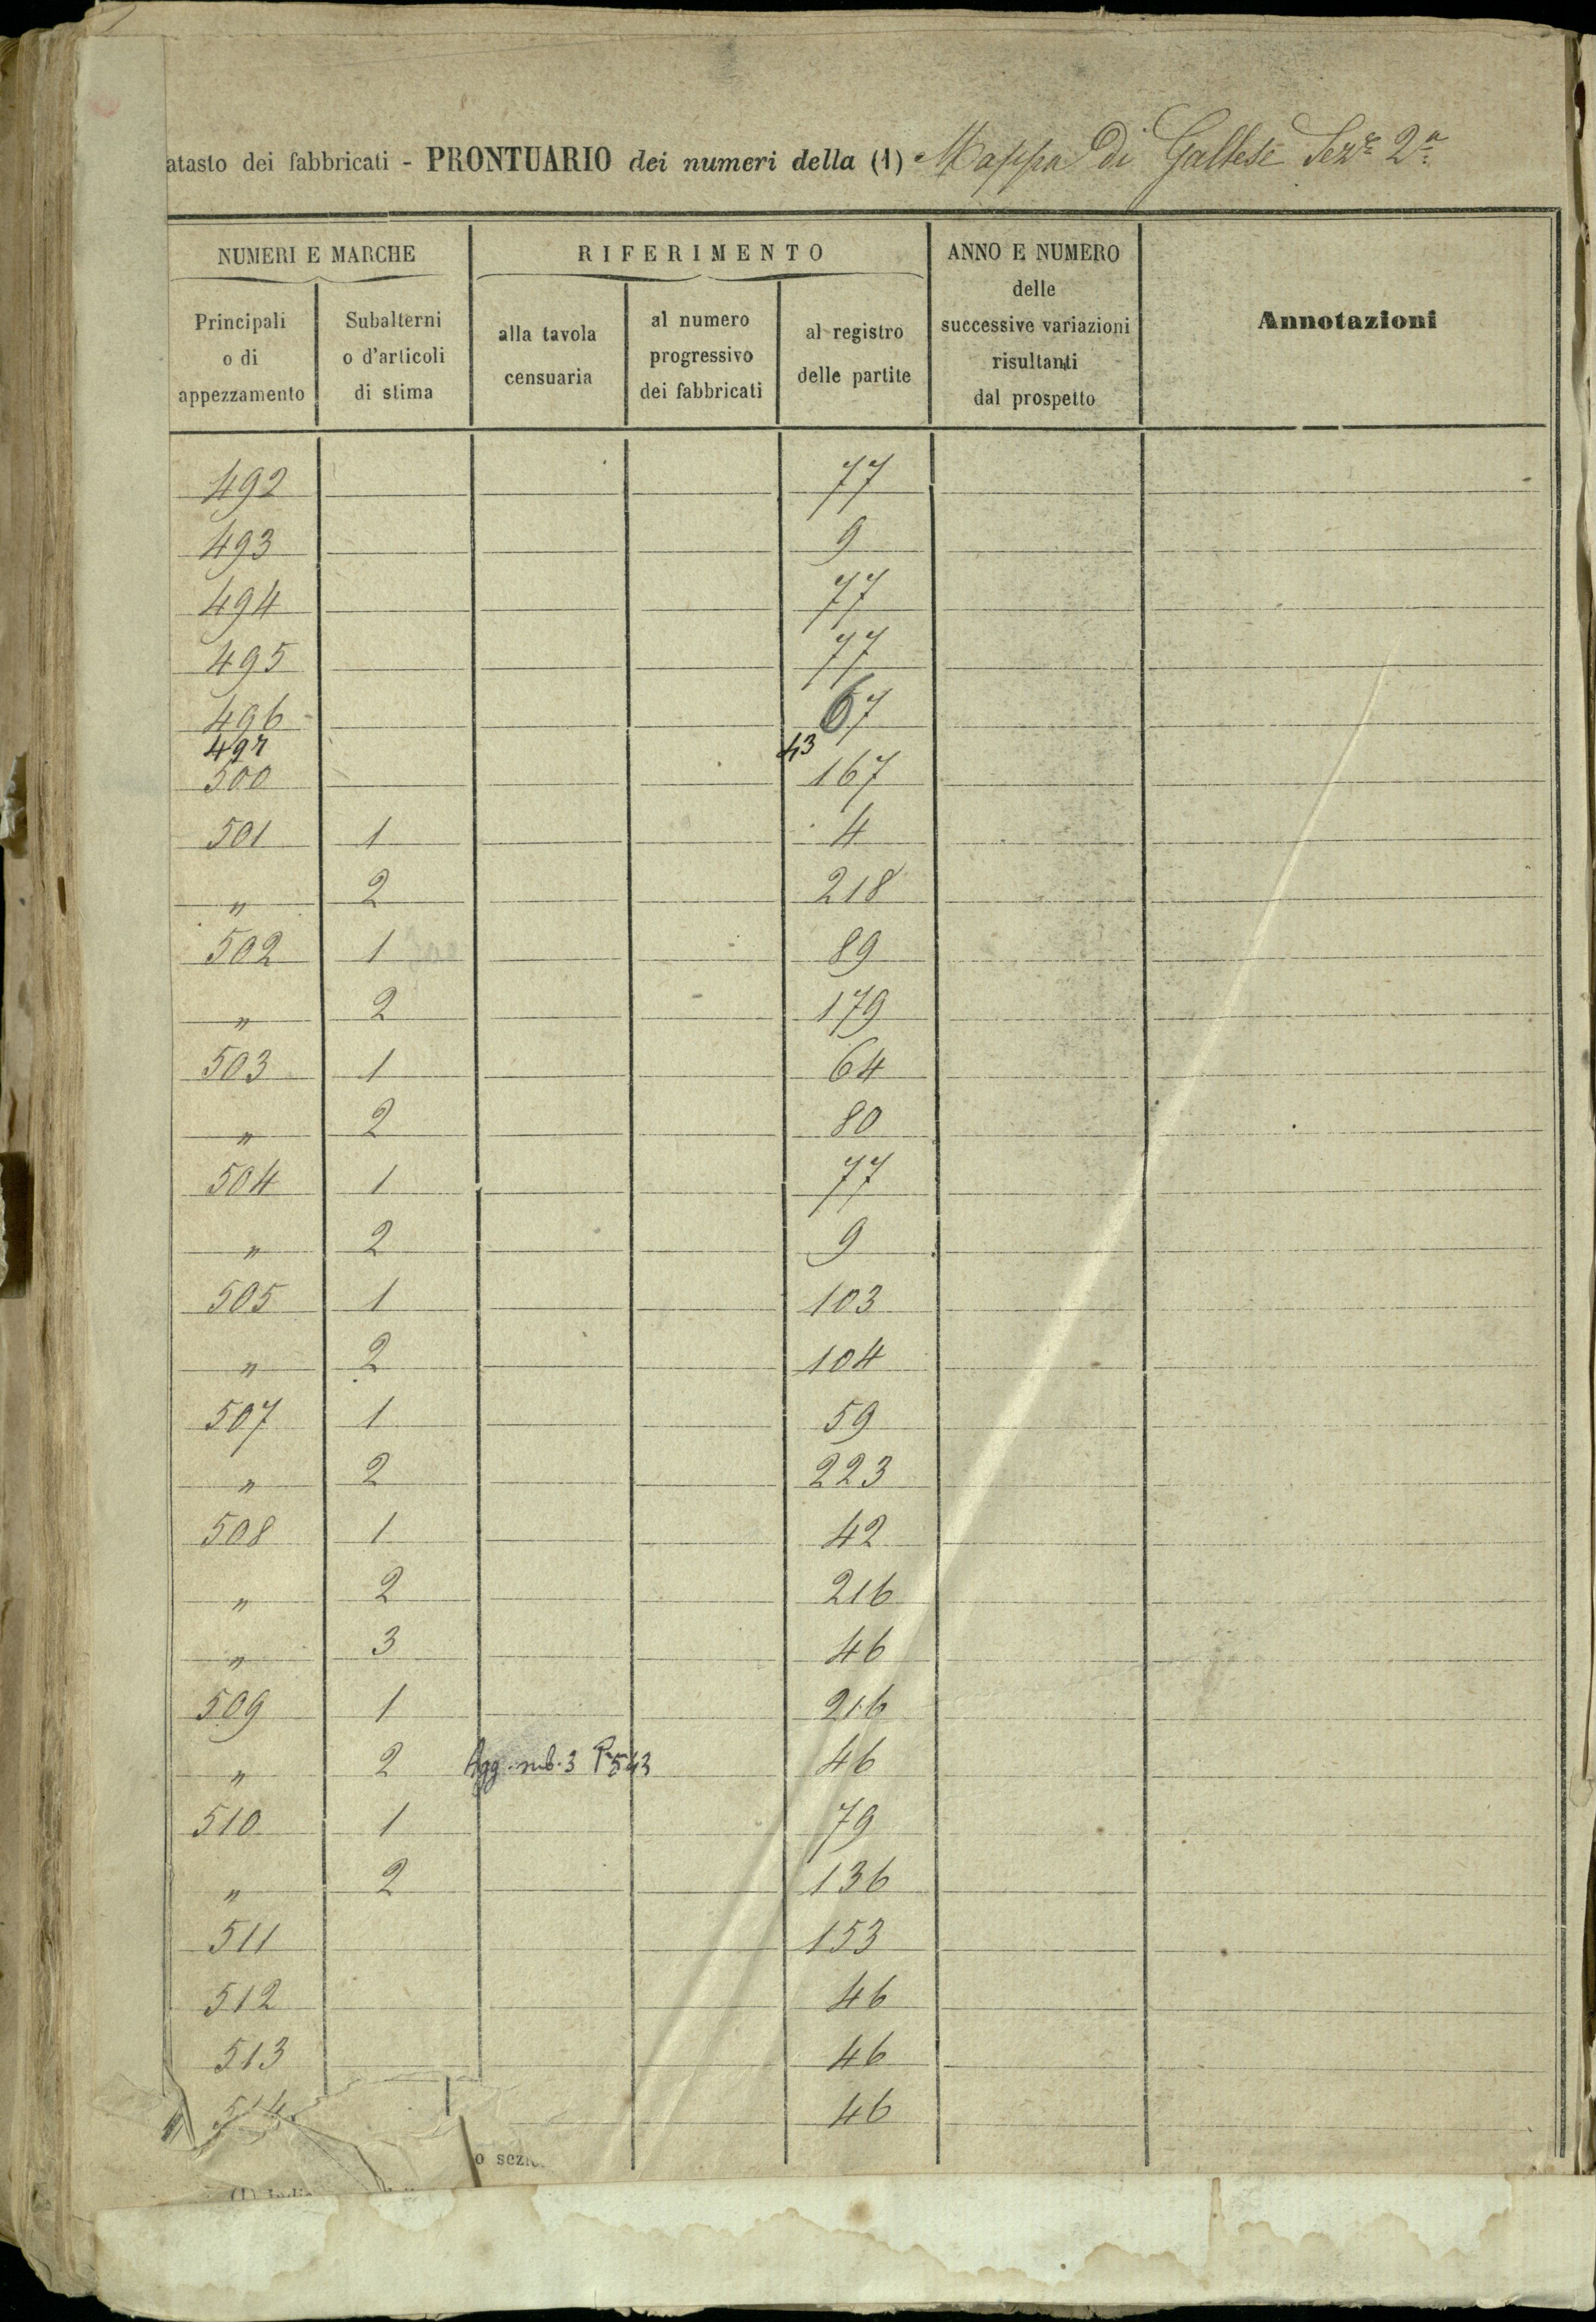 atasto dei fabbricati - PRONTUARIO dei numeri della (1) Mappa di Gallese Sez.e 2.a
NUMERI E MARCHE
RIFERIMENTO
ANNO E NUMERO
delle
successive variazioni
risultanti
dal prospetto
Annotazioni
Principali
o di
appezzamento
Subalterni
o d'articoli
di stima
alla tavola
censuaria
al numero
progressivo
dei fabbricati
al registro
delle partite
492 77
493 9
494 77
495 77
496 67
497 43
500 167
501 1 4
" 2 218
502 1 89
" 2 179
503 1 64
" 2 80
504 1 77
" 2 9
505 1 103
" 2 104
507 1 59
" 2 223
508 1 42
" 2 216
" 3 46
509 1 216
" 2 Agg. sub. 3 P 543 46
510 1 79
" 2 136
511 153
512 46
513 46
514 46